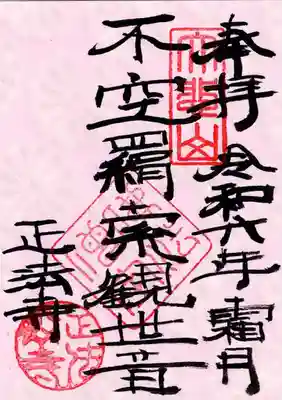 奉拝 令和六年 霜月
不空羂索観世音
正法寺